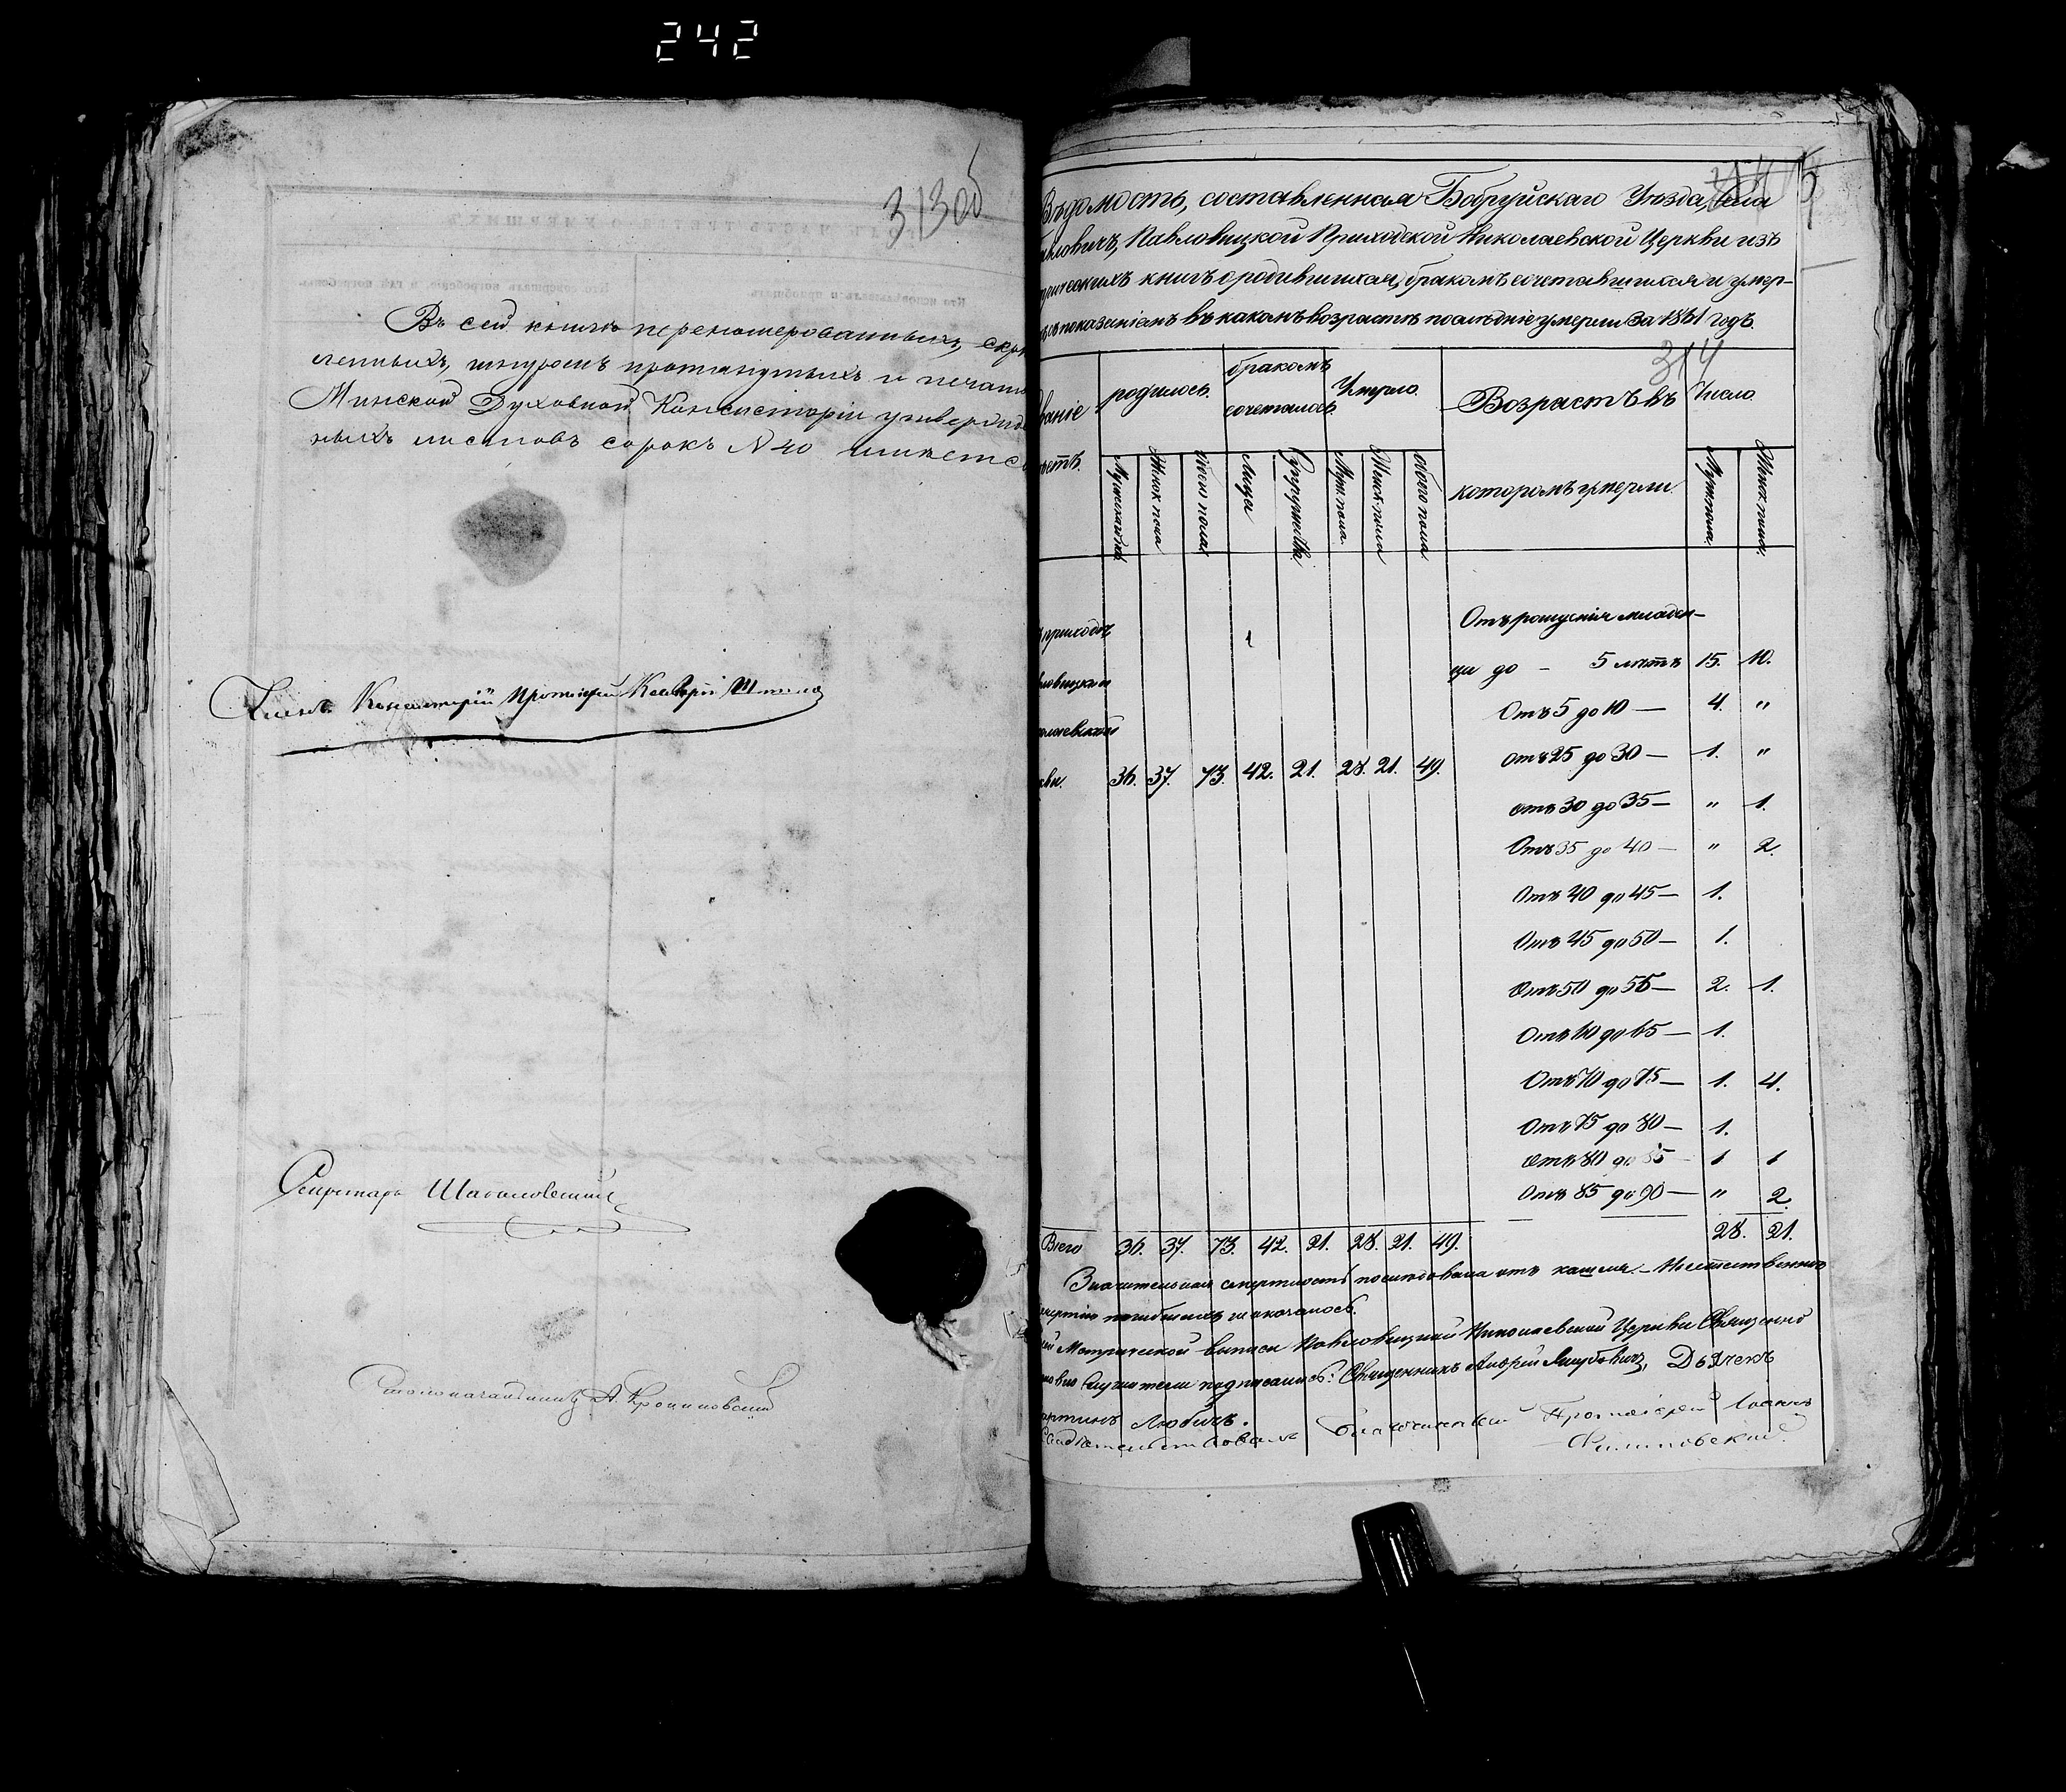 242
313 об
Въ сей книгѣ перенумерованныхъ, скрѣ
ленныхъ, шнуромъ протянутыхъ и печатью
Минской Духовной Консисторіи утвержден
ныхъ листовъ сорокъ N 40 имѣется
Членъ Консисторіи Протоіерей
Секретарь
Столоначальникъ А.
Вѣдомость, составленная Бобруйскаго Уѣзда, села
Павловичъ, Павловицкой Приходской Николаевской Церкви изъ
рическихъ книгъ о родившихся, бракомъ сочетавшихся и умер-
съ показаніемъ въ какомъ возрастѣ послѣдніе умерли за 1861 годъ.
314
родилось. бракомъ сочеталось. Умерло. Возрастъ въ которомъ умерли. Число
Мужескаго пола Женск. пола обоего пола Лица Супружества Муж. пола. Женск. пола обоего пола Муж. пола. Женск. пола.
приходѣ
ловицкой
олаевской
кви. 36. 37. 73. 42. 21. 28. 21. 49.
Отъ рожденія младен-
ца до - 5 лѣтъ 15. 10.
Отъ 5 до 10 — 4. "
Отъ 25 до 30 — 1. "
отъ 30 до 35 — " 1.
Отъ 35 до 40 — " 2.
Отъ 40 до 45 — 1.
Отъ 45 до 50 — 1.
Отъ 50 до 55 — 2. 1.
Отъ 60 до 65 — 1.
Отъ 70 до 75 — 1. 4.
Отъ 75 до 80 — 1.
Отъ 80 до 85 - 1 1
Отъ 85 до 90 — " 2.
28. 21.
Всего 36. 37. 73. 42. 21. 28. 21. 49.
Значительная смертность послѣдовала отъ кашля. — Неестественною
смертію погибшихъ не оказалось.
ей Метрической выписи Павловицкой Николаевской Церкви Священно
служители подписались: Священникъ Андрей Якубовичъ, Дьячекъ
Мартинъ Любичъ.
Свидѣтельствовалъ Благочинный Протоіерей Іоаннъ